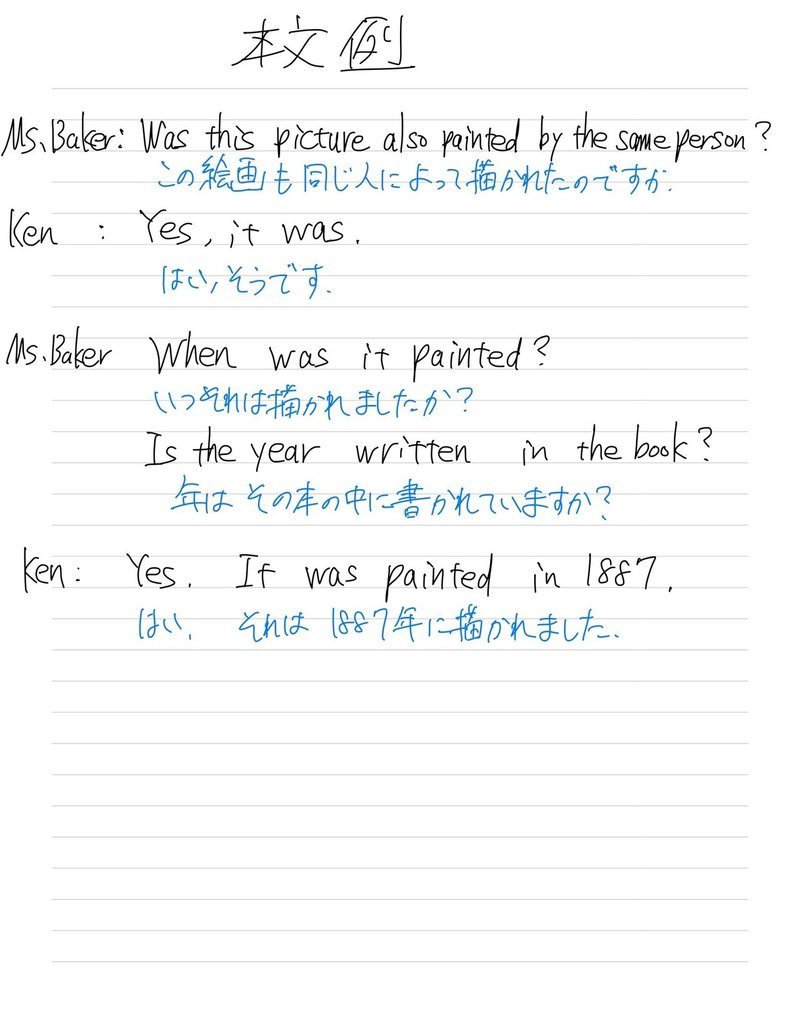 本文例
Ms.Baker: Was this picture also painted by the same person?
この絵画も同じ人によって描かれたのですか.
Ken : Yes, it was.
はい,そうです.
Ms.Baker When was it painted?
いつそれは描かれましたか?
Is the year written in the book?
年はその本の中に書かれていますか?
Ken: Yes. It was painted in 1887.
はい. それは1887年に描かれました.